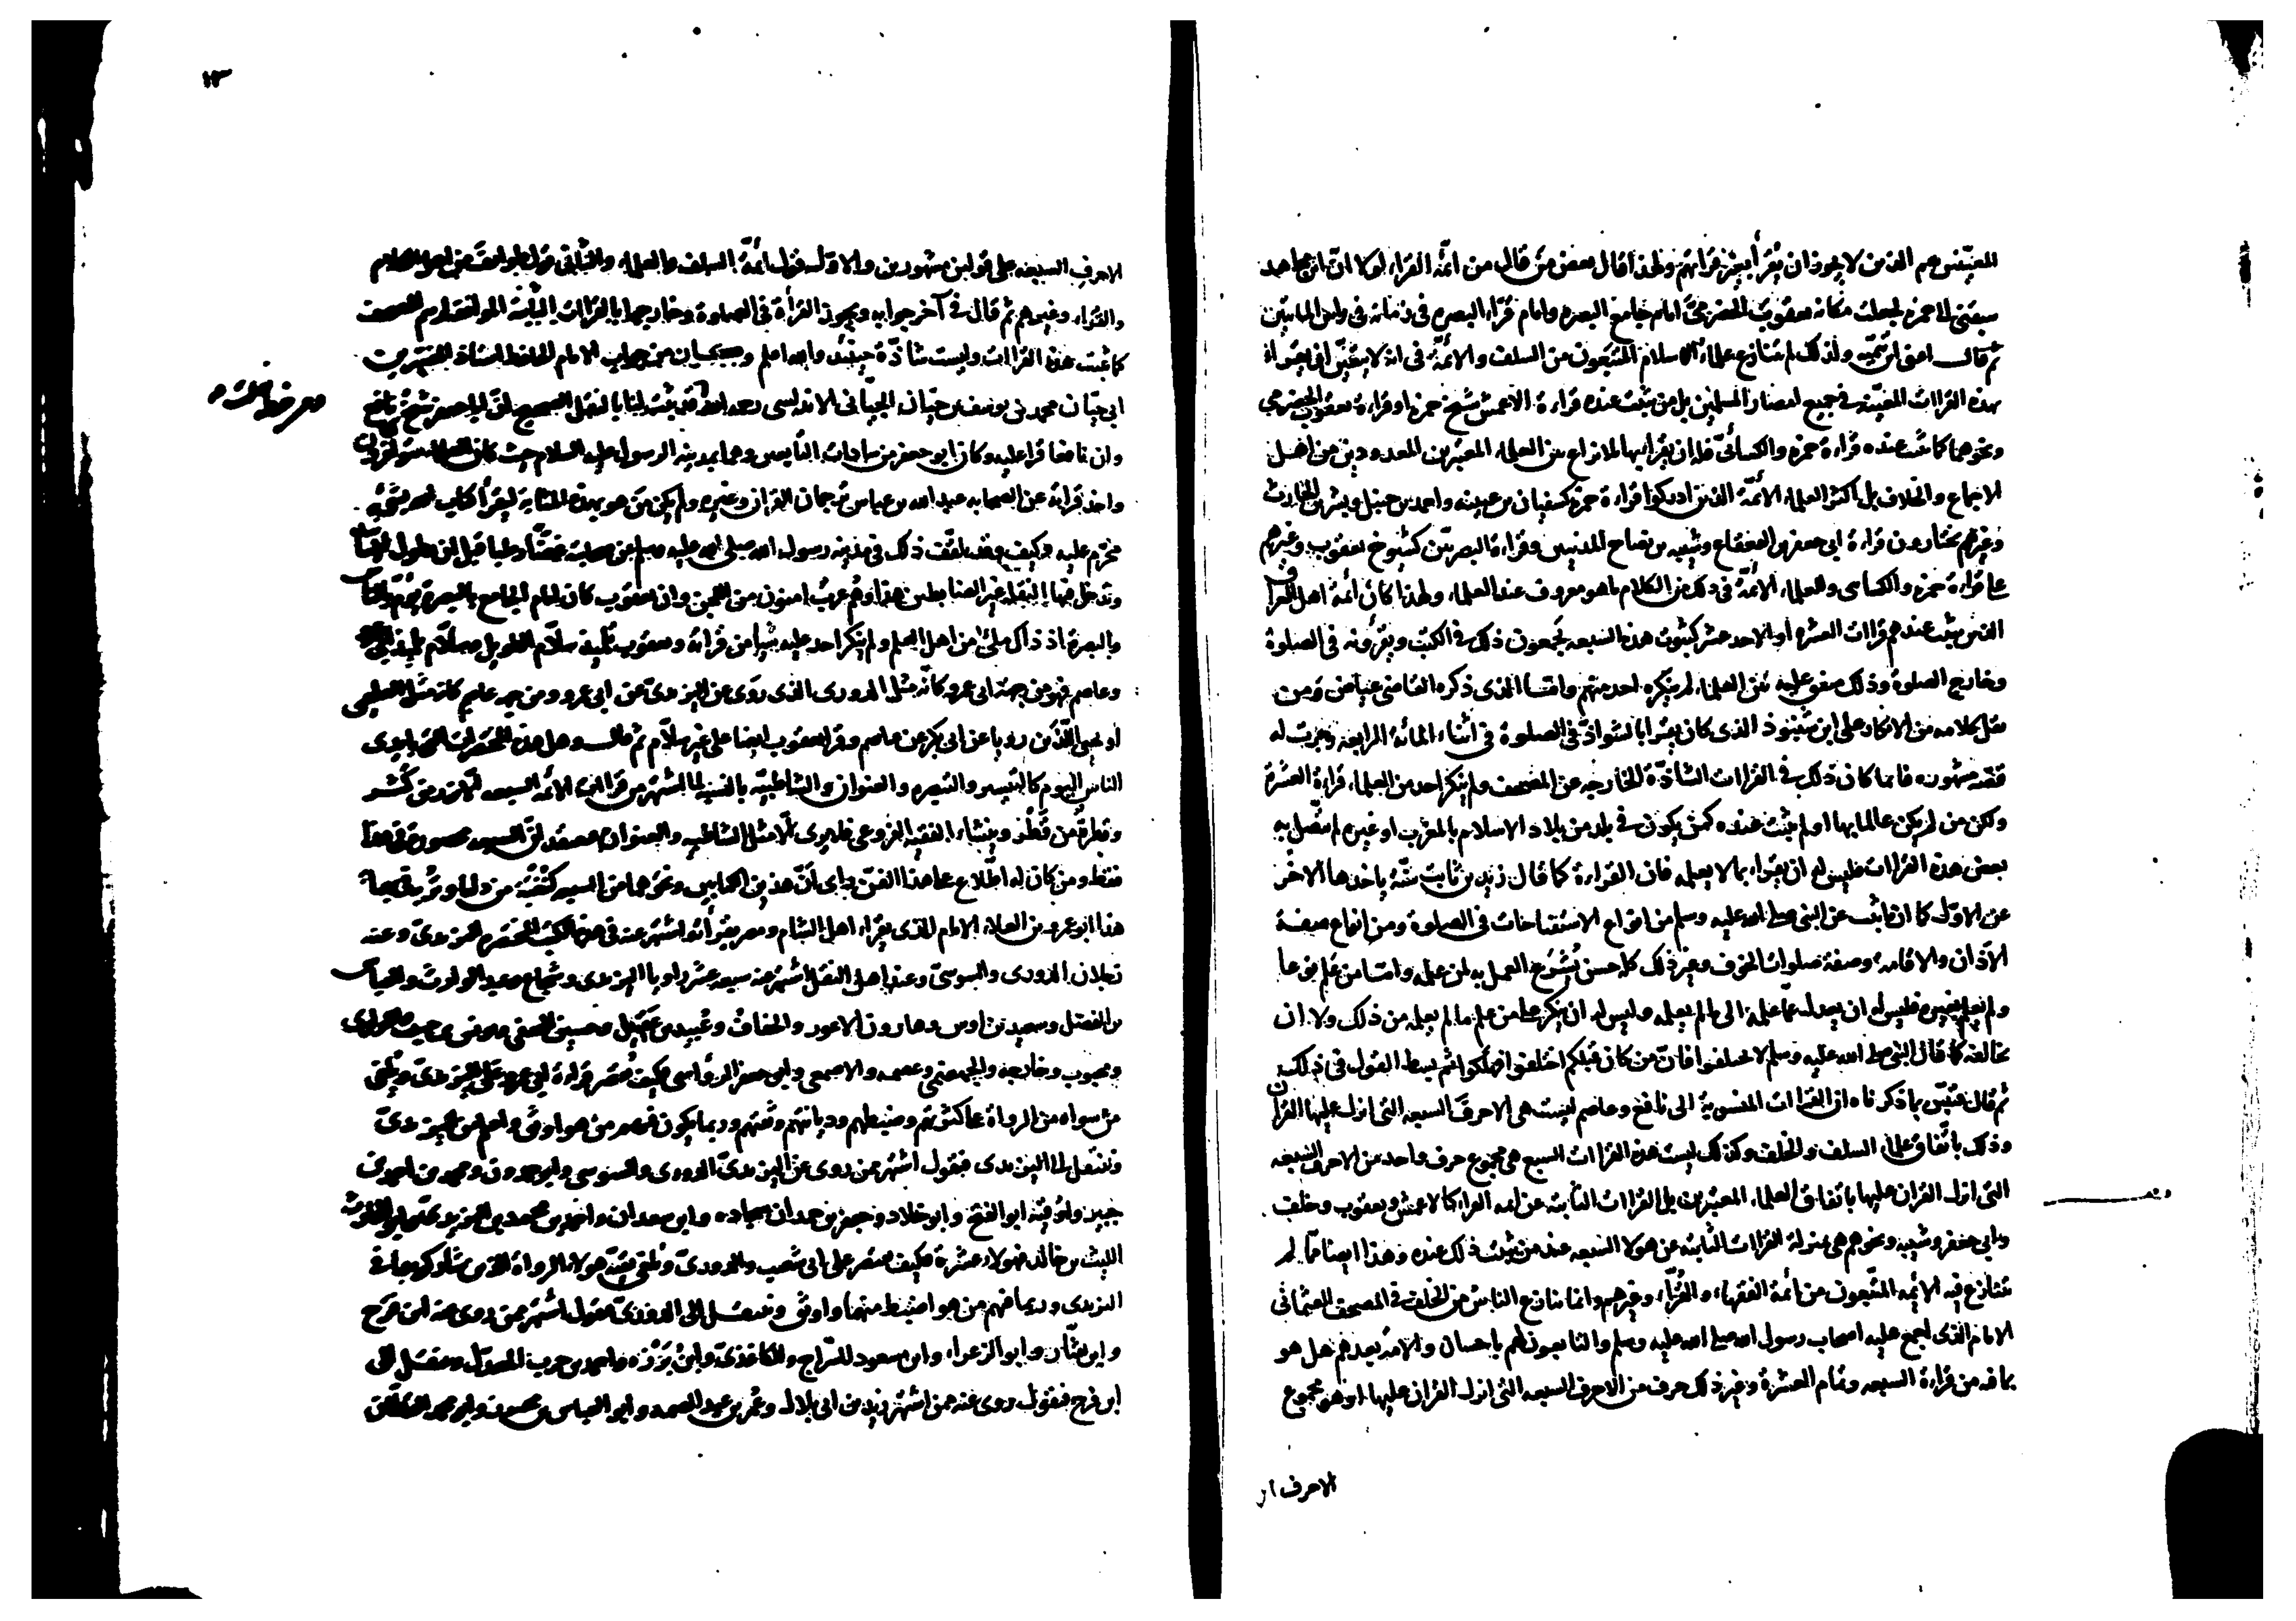 المعيّنين هم الذين لا يجوز ان يُقرأ بغير قراءتهم ولهذا قال بعض من قال من ائمّة القراء لولا انّ ابن مجاهد
سبقنى الى حمزه لجعلت مكانه يعقوب الحضرمىّ امام جامع البصره وامام قرّاء البصره فى زمانه فى راس المايتين
ثم قال اعنى ابن تيميّه ولذلك لم يتنازع علماء الاسلام المتبعون من السلف والائمّة فى انه لا يتعيّن ان يُقرأ
بهذه القراات المعيّنة فى جميع امصار المسلمين بل من ثبتت عنده قراءة الاعمش شيخ حمزه او قراءة يعقوب الحضرمي
ونحوهما كما ثبت عنده قراءة حمزه والكسائىّ فله ان يقرأ بها بلا نزاع بين العلماء المعتبرين المعدودين من اهل
الاجماع والخلاف بل اكثر العلماء الأئمّة الذين ادركوا قراءة حمزه كسفيان بن عيينه واحمد بن حنبل وبشر بن الحارث
وغيرهم يختارون قراءة ابي جعفر بن القعقاع وشيبه بن نصاح المدنيين وقراءة البصريّين كشيوخ يعقوب وغيرهم
على قراءة حمزه والكساى وللعلماء الأئمّة فى ذلك من الكلام ما هو معروف عند العلماء ولهذا كان أئمة اهل العراق
الذين يثبت عندهم قراات العشره او الاحد عشر كثبوت هذه السبعه يَجمعون ذلك فى الكتب ويقرؤنه فى الصلوة
وخارج الصلوة وذلك متفق عليه بين العلماء لم ينكره احد منهم وامّا الذى ذكره القاضى عياض ومن
نقل كلامه من الانكار على ابن شنبوذ الذى كان يقرأ بالشواذّ فى الصلوة فى اثناء المائة الرابعه وجرت له
قصه مشهوره فانما كان ذلك فى القراات الشاذّة الخارجه عن المصحف ولم ينكر احد من العلماء قراءة العشرة
ولكن من لم يكن عالما بها او لم تثبت عنده كمن يكون فى بلد من بلاد الاسلام بالمغرب او غيره لم يتّصل به
بعض هذه القراات فليس له ان يقرأ بما لا يعلمه فان القراءة كما قال زيد بن ثابت سنّة ياخذها الاخر
عن الاول كما ان ما ثبت عن النبى صلى الله عليه وسلم من انواع الاستفتاحات فى الصلوة ومن انواع صفة
الاذان والاقامه وصفة صلوات الخوف وغير ذلك كله حسن يُشرَع العمل به لمن علمه وامّا من عَلِم نوعا
ولم يعلم بغيره فليس له ان يعدل عمّا علمه الى ما لم يعلمه وليس له ان ينكر على من علم ما لم يعلمه من ذلك ولا ان
يخالفه كما قال النبى صلى الله عليه وسلم لا تختلفوا فانّ من كان قبلكم اختلفوا فهلكوا ثم بسط القول فى ذلك
ثم قال فتبيّن بما ذكرناه ان القراات المنسوبة الى نافع وعاصم ليست هى الاحرف السبعه التى انزل عليها القران
وذلك باتّفاق علماء السلف والخلف وكذلك ليست هذه القراات السبع هى مجموع حرف واحد من الاحرف السبعه
التى انزل القران عليها باتفاق العلماء المعتبرين بل القراات الثابتة عن ائمه القراء كالاعمش ويعقوب وخلف
وابي جعفر وشيبه ونحوهم هى بمنزلة القراات الثابته عن هولاء السبعه عند من يثبت ذلك عنده وهذا ايضا ممّا لم
يتنازع فيه الأئمه المتّبعون من أئمة الفقهاء والقُرّاء وغيرهم وانما تنازع الناس من الخلف فى المصحف العثمانى
الامام الذى اجمع عليه اصحاب رسول الله صلى الله عليه وسلم والتابعون لهم باحسان والامه بعدهم هل هو
بما فيه من قراءة السبعه وتمام العشرة وغير ذلك حرف من الاحرف السبعه التى انزل القران عليها او هو مجموع
الاحرف ا
١٣
الاحرف السبعه على قولين مشهورين والاول قول أئمّة السلف والعلماء والثانى قول طوايف من اهل الكلام
والقرّاء وغيرهم ثم قال فى آخر جوابه ويجوز القرأة فى الصلوة وخارجها بالقراات الثابتة الموافقة لرسم المصحف
كما ثبت هذه القراات وليست شاذّة حينئذ والله اعلم من جواب الامام الحافظ استاذ المفسّرين
ابى حيّان محمد بن يوسف بن حيّان الجيّانى الاندلسى رحمه الله قد ثبت لنا بالنقل الصحيح انّ ابا جعفر شيخ نافع
وان نافعا قرأ عليه وكان ابو جعفر من سادات التابعين وهما بمدينة الرسول عليه السلام حيث كان العلماء متوافرين
واخذ قراءته عن الصحابه عبد الله بن عباس ترجمان القران وغيره ولم يكن من هو بهذه المثابة ليقرأ كتاب الله بشىء
محرّم عليه وكيف وقد تلقّف ذلك فى مدينه رسول الله صلى الله عليه وسلم عن صحابته غضّا رطبا قبل ان تطول الاسانيد
وتدخل فيها النقلة غير الضابطين هذا وهم عرب آمنون من اللحن وان يعقوب كان امام الجامع بالبصرة يؤمّ الناس
والبصرة اذ ذاك ملأى من اهل العلم ولم ينكر احد عليه شيا من قراءته ويعقوب تلميذ سلّام الطويل وسلّام تلميذ ابى عمرو
وعاصم فهو من جهة ابى عمرو كانّه مثل الدورى الذى روى عن اليزيدىّ عن ابى عمرو ومن جهه عاصم كانه مثل العليمى
او يحيى اللذين رويا عن ابى بكر عن عاصم وقرأ يعقوب ايضا على غير سلّام ثم قال وهل هذه المختصرات التى بايدى
الناس اليوم كالتيسير والتبصره والعنوان والشاطبيّه بالنسبة لما اشتهر من قراءات الأئمه السبعه الا نزر من كثر
وقطرة من قَطْر وينشأ الفقيه الفروعى فلا يرى الّا مثل الشاطبيه والعنوان فيعتقد انّ السبعه محصورة فى هذا
فقط ومن كان له اطّلاع على هذا الفنّ راى انّ هذين الكتابين ونحوهما من السبعه كنغبة من دأماء وتربة فى بهماء
هذا ابو عمرو بن العلاء الامام الذى يقرأ اهل الشام ومصر بقرأته اشتهر عنه فى هذه الكتب المختصره اليزيدىّ وعنه
رجلان الدورى والسوسىّ وعند اهل النقل اشتهر عنه سبعه عشر راويا اليزيدى وشجاع وعبد الوارث والعباس
بن الفضل وسعيد بن اوس وهارون الاعور والخفاف وعُبيد بن عقيل وحسين الجعفى ويونس بن حبيب واللؤلؤى
ومحبوب وخارجه والجهضمى وعصمه والاصمعى وابو جعفر الرؤاسى فكيف تُقصر قراءة ابى عمرو على اليزيدىّ ويُلغى
من سواه من الرواة على كثرتهم وضبطهم ودرايتهم وثقتهم وربما يكون فيهم من هو اوثق واعلم من اليزيدىّ
وننتقل الى اليزيدى فنقول اشتهر ممن روى عن اليزيدىّ الدورى والسوسى وابو حمدون ومحمد بن احمد بن
جبير واوقية ابو الفتح وابو خلاد وجعفر بن حمدان سجاده وابن سعدان واحمد بن محمد بن اليزيدى وابو الحارث
الليث بن خالد فهولاء عشرة فكيف يقتصر على ابى شعيب والدورىّ ويُلغى بقيّة هولاء الرواة الذين شاركوهما فى
اليزيدى وربما فيهم من هو اضبط منهما واوثق وننتقل الى الدورىّ فنقول اشتهر ممن روى عنه ابن فرح
وابن بشّار وابو الزعراء وابن مسعود السّراج والكاغذىّ وابن بَرْزه واحمد بن حرب المعدّل وننتقل الى
ابن فرح فنقول روى عنه ممن اشتهر زيد بن ابى بلال وعُمر بن عبد الصمد وابو العباس بن محيريز وابو محمد القطان